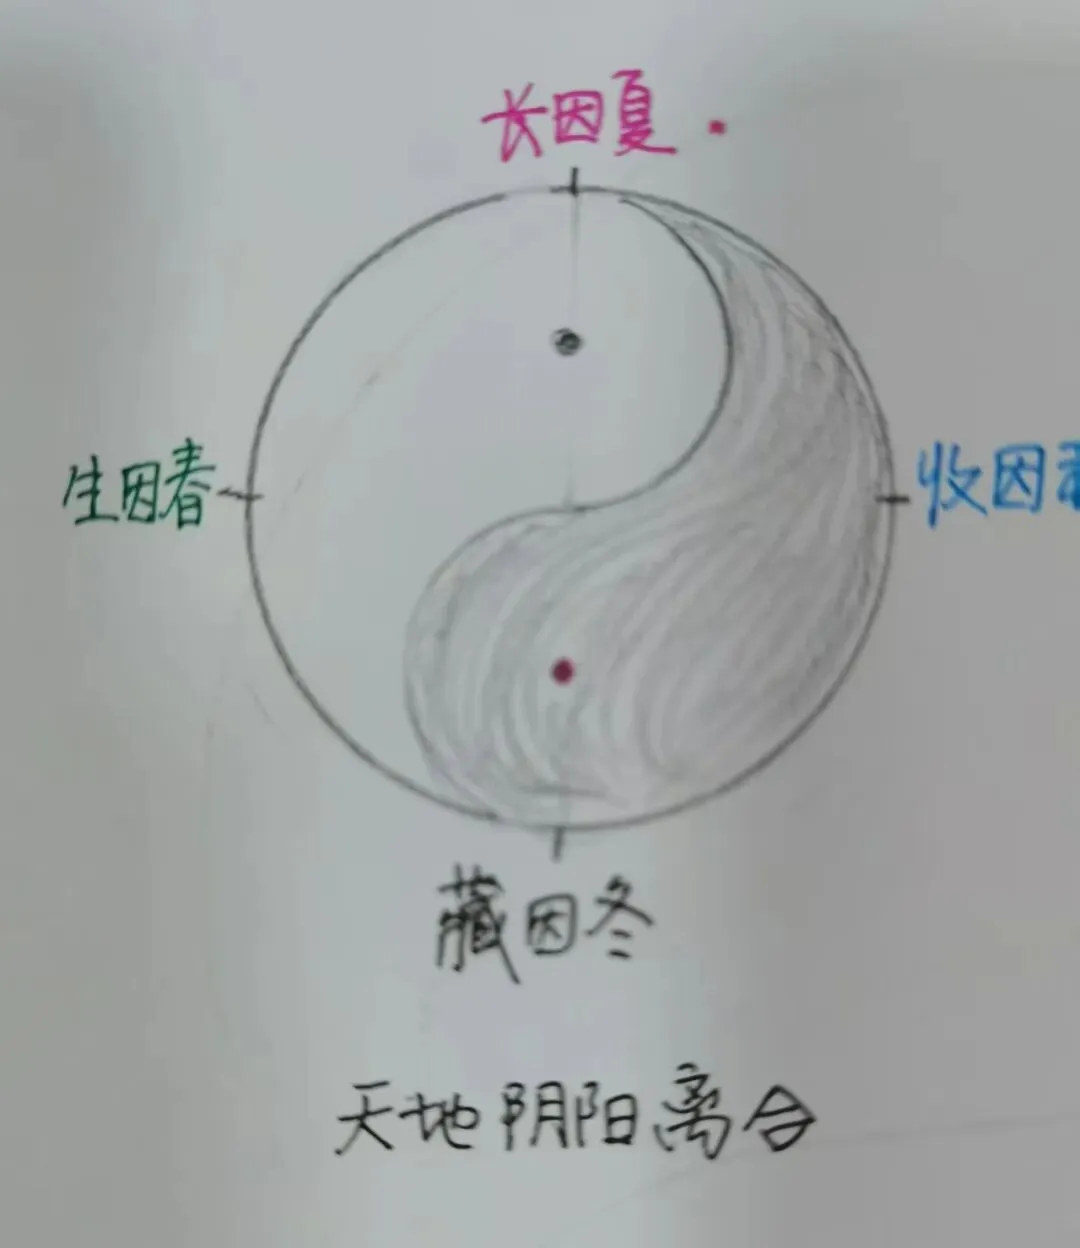 长因夏
生因春
收因
藏因冬
天地阴阳离合